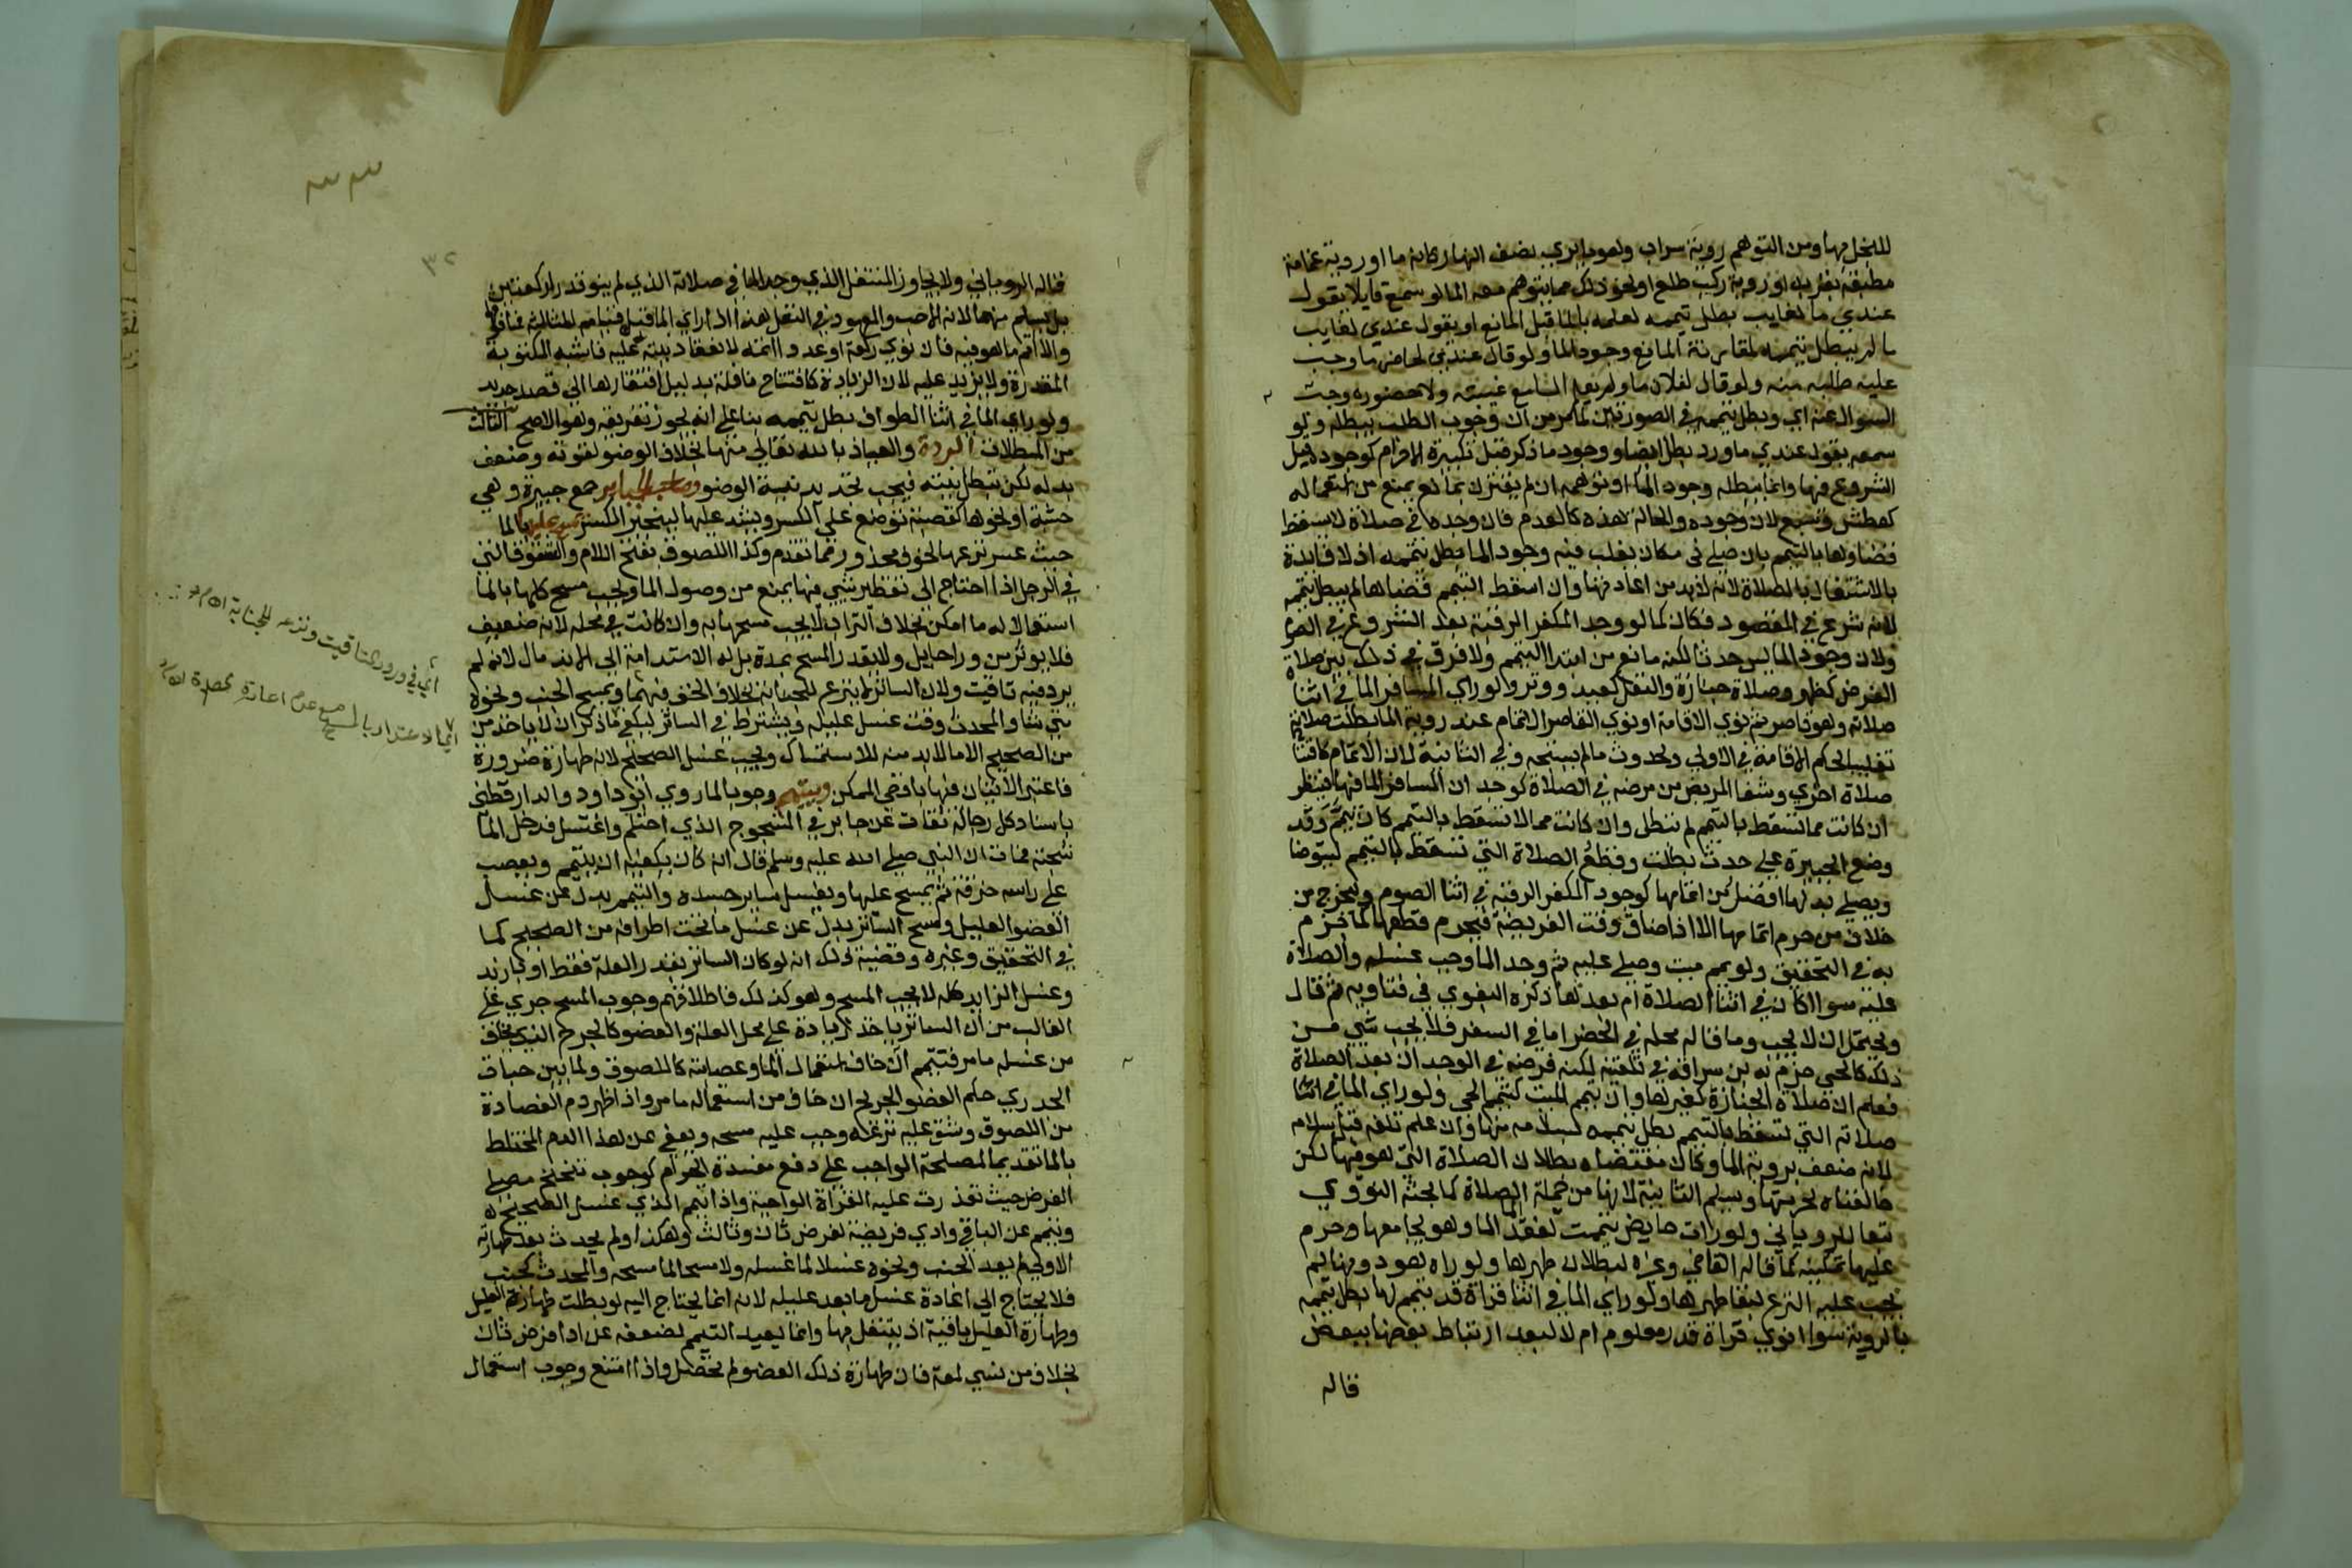 للبخل بها ومن التوهم روية سراب وهو ما يرى نصف النهار كانه ما او روية غمامة
مطبقة بقربه او روية ركب طلع او نحو ذلك مما يتوهم معه الما لو سمع قايلا يقول
عندي ما لغايب بطل تيممه لعلمه بالما قبل المانع او يقول عندي لغايب
ما لم يبطل تيممه لمقارنة المانع وجود الما ولو قال عندي لحاضر ما وجب
عليه طلبه منه ولو قال لفلان ما ولم يعلم السامع غيبته ولا حضوره وجب
السوال عنه اي وبطل تيممه في الصورتين لما مر من ان وجوب الطلب يبطله ولو
سمعه يقول عندي ما ورد بطل ايضا ووجود ما ذكر قبل تكبيرة الاحرام كوجوده قبل
الشروع فيها وانما يبطله وجود الما او توهمه ان لم يقترن بمانع يمنع من استعماله
كعطش وسبع لان وجوده والحالة هذه كالعدم فان وجده في صلاة لا يسقط
قضاوها بالتيمم بان صلى في مكان يغلب فيه وجود الما بطل تيممه اذ لا فايدة
بالاشتغال بالصلاة لانه لا بد من اعادتها وان اسقط التيمم قضاها لم يبطل تيممه
لانه شرع في المقصود فكان كما لو وجد المكفر الرقبة بعد الشروع في الصوم
ولان وجود الما ليس حدثا لكنه مانع من ابتدا التيمم ولا فرق في ذلك بين صلاة
الفرض كظهر وصلاة جنازة والنفل كعيد ووتر ولو راى المسافر الما في اثنا
صلاته وهو قاصر ثم نوى الاقامة او نوى القاصر الاتمام عند روية الما بطلت صلاته
تغليبا لحكم الاقامة في الاولى ولحدوث ما لم يستبحه في الثانية لان الاتمام كافتتاح
صلاة اخرى وشفا المريض من مرضه في الصلاة كوجدان المسافر الما فيها فينظر
ان كانت مما تسقط بالتيمم لم تبطل وان كانت مما لا تسقط بالتيمم كان تيمم وقد
وضع الجبيرة على حدث بطلت وقطع الصلاة التي تسقط بالتيمم ليتوضا
ويصلي بدلها افضل من اتمامها كوجود المكفر الرقبة في اثنا الصوم وليخرج من
خلاف من حرم اتمامها الا اذا ضاق وقت الفريضة فيحرم قطعها كما جزم
به في التحقيق ولو يمم ميت وصلي عليه ثم وجد الما وجب غسله والصلاة
عليه سوا اكان في اثنا الصلاة ام بعدها ذكره البغوي في فتاويه ثم قال
ويحتمل ان لا يجب وما قاله محله في الحضر اما في السفر فلا يجب شي من
ذلك كالحي جزم به ابن سراقة في تلقينه لكنه فرضه في الوجدان بعد الصلاة
فعلم ان صلاة الجنازة كغيرها وان تيمم الميت كتيمم الحي ولو راى الما في اثنا
صلاته التي تسقط بالتيمم بطل تيممه بسلامه منها وان علم تلفه قبل سلامه
لانه ضعف بروية الما وكان مقتضاه بطلان الصلاة التي هو فيها لكن
خالفناه لحرمتها ويسلم الثانية لانها من جملة الصلاة كما بحثه النووي
تبعا للروياني ولو رات حايض تيممت لفقد الما وهو يجامعها حرم
عليها تمكينه كما قاله القاضي وغيره لبطلان طهرها ولو راه هو دونها لم
يجب عليه النزع لبقا طهرها ولو راى الما في اثنا قراة قد تيمم لها بطل تيممه
بالروية سوا نوى قراة قدر معلوم ام لا لبعد ارتباط بعضها ببعض
قاله
٣٢
قاله الروياني ولا يجاوز المتنفل الذي وجد الما في صلاته الذي لم ينو قدرا ركعتين
بل يسلم منهما لانه الاحب والمعهود في النفل هذا اذا راى الما قبل قيامه للثالثة فما فوقها
والا اتم ما هو فيه فان نوى ركعة او عددا اتمه لانعقاد نيته عليه فاشبه المكتوبة
المقدرة ولا يزيد عليه لان الزيادة كافتتاح نافلة بدليل افتقارها الى قصد جديد
ولو راى الما في اثنا الطواف بطل تيممه بنا على انه يجوز تفريقه وهو الاصح الثالث
من المبطلات الردة والعياذ بالله تعالى منها بخلاف الوضو لقوته وضعف
بدله لكن تبطل نيته فيجب تجديد نية الوضو وصاحب الجباير جمع جبيرة وهي
خشبة او نحوها كقصبة توضع على الكسر ويشد عليها لينجبر الكسر يمسح عليها بالما
حيث عسر نزعها لخوف محذور مما تقدم وكذا اللصوق بفتح اللام والشقوق التي
في الرجل اذا احتاج الى تقطير شي فيها يمنع من وصول الما ويجب مسح كلها بالما
استعمالا له ما امكن بخلاف التراب لا يجب مسحها به وان كانت في محله لانه ضعيف
فلا يوثر من ورا حايل ولا يقدر المسح بمدة بل له الاستدامة الى الاندمال لانه لم
يرد فيه تاقيت ولان الساتر لا ينزع للجنابة بخلاف الخف فيهما ويمسح الجنب ونحوه
متى شا والمحدث وقت غسل عليله ويشترط في الساتر ليكفي ما ذكر ان لا ياخذ من
من الصحيح الا ما لا بد منه للاستمساك ويجب غسل الصحيح لانه طهارة ضرورة
فاعتبر الاتيان فيها باقصى الممكن ويتيمم وجوبا لما روى ابو داود والدارقطني
باسناد كل رجاله ثقات عن جابر في المشجوج الذي احتلم واغتسل فدخل الما
شجته فمات ان النبي صلى الله عليه وسلم قال انه كان يكفيه ان يتيمم ويعصب
على راسه خرقة ثم يمسح عليها ويغسل ساير جسده والتيمم بدل عن غسل
العضو العليل ومسح الساتر بدل عن غسل ما تحت اطرافه من الصحيح كما
في التحقيق وغيره وقضية ذلك انه لو كان الساتر بقدر العلة فقط او بازيد
وغسل الزايد كله لا يجب المسح وهو كذلك فاطلاقهم وجوب المسح جري على
الغالب من ان الساتر ياخذ زيادة على محل العلة والعضو كالجرح الذي يخاف
من غسله ما مر فيتيمم ان خاف استعمال الما وعصابته كاللصوق ولما بين حبات
الجدري حكم العضو الجريح ان خاف من استعماله ما مر واذا ظهر دم الفصادة
من اللصوق وشق عليه نزعه وجب عليه مسحه ويعفى عن هذا الدم المختلط
بالما تقديما لمصلحة الواجب على دفع مفسدة الحرام كوجوب تنحنح مصلي
الفرض حيث تعذرت عليه القراة الواجبة واذا تيمم الذي غسل الصحيح
وتيمم عن الباقي وادى فريضة لفرض ثان وثالث وهكذا ولم يحدث بعد طهارته
الاولى لم يعد الجنب ونحوه غسلا لما غسله ولا مسحا لما مسحه والمحدث كجنب
فلا يحتاج الى اعادة غسل ما بعد عليله لانه انما يحتاج اليه لو بطلت طهارة العليل
وطهارة العليل باقية اذ يتنفل بها وانما يعيد التيمم لضعفه عن ادا فرض ثان
بخلاف من نسي لمعة فان طهارة ذلك العضو لم تحصل واذا امتنع وجوب استعمال
اي في ورود التاقيت ونزعه للجنابة